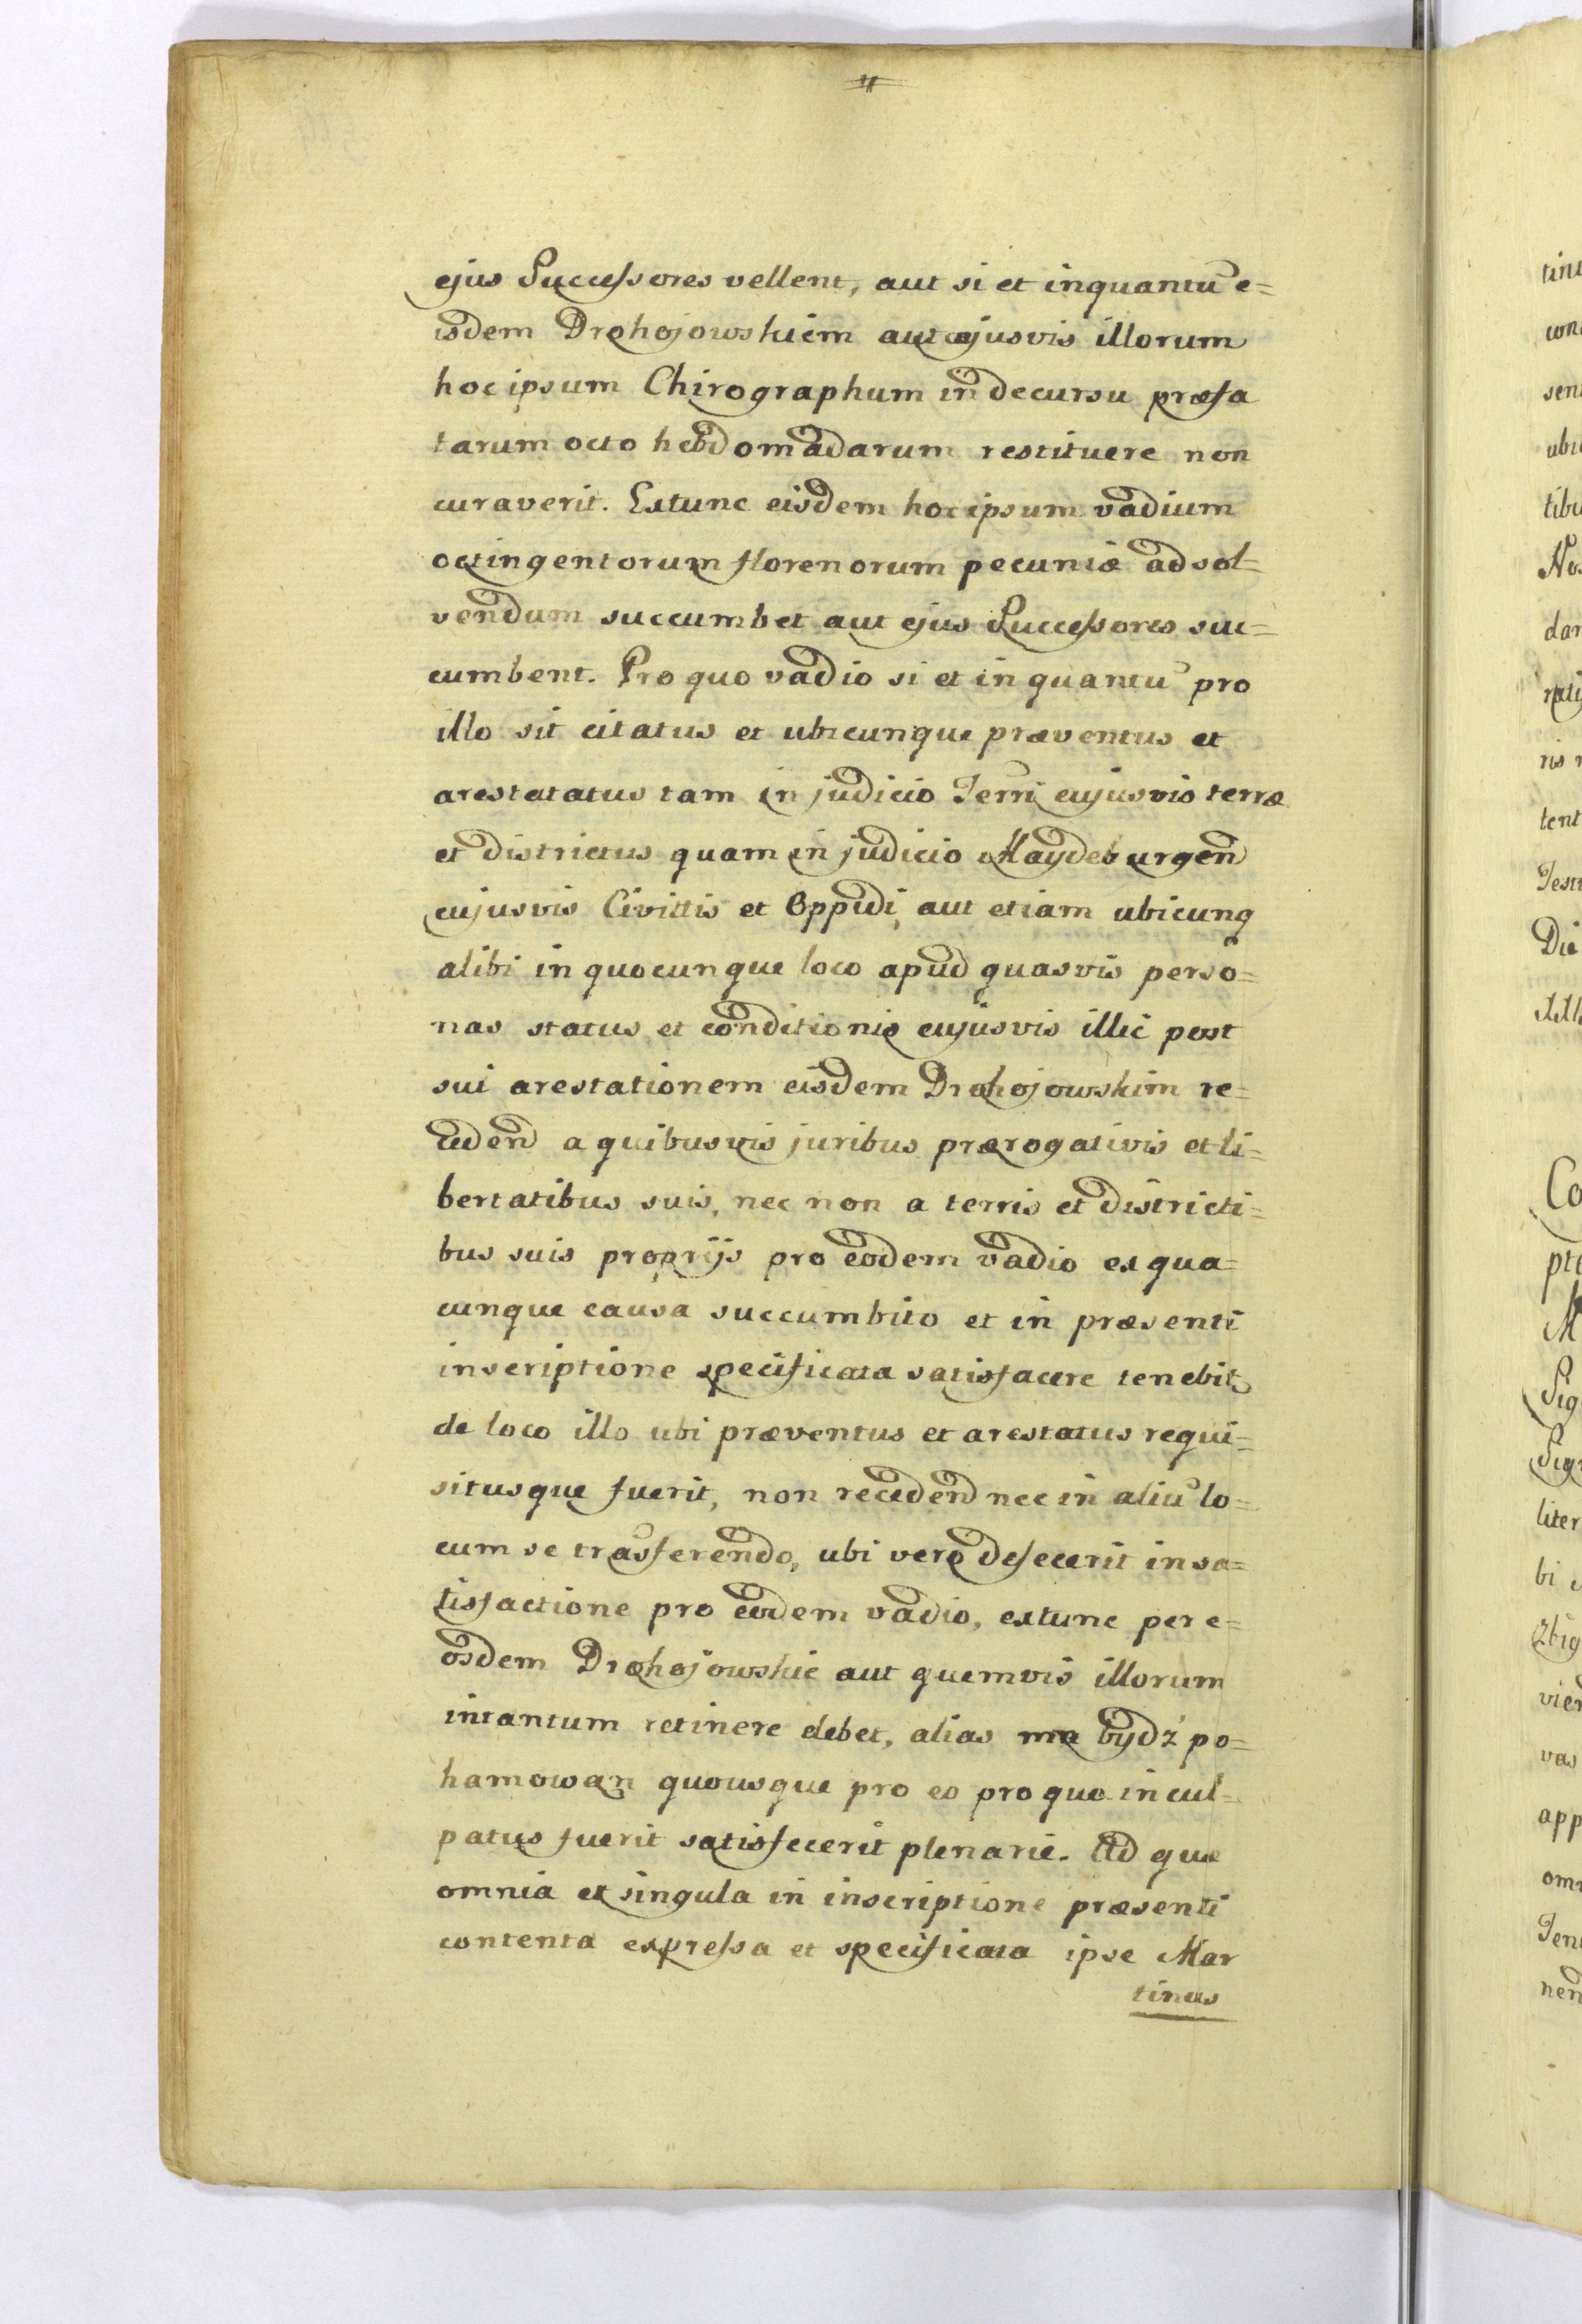 ejus Successores vellent, aut si et inquantū e=
isdem Drohojowskiem aut cujusvis illorum
hoc ipsum Chirographum in decursu præfa
tarum octo hebdomadarum restituere non
curaverit. Extunc eisdem hoc ipsum vadium
octingentorum florenorum pecuniæ ad sol=
vendum succumbet aut ejus Successores suc=
cumbent. Pro quo vadio si et in quantū pro
illo sit citatus et ubicunque præventus et
arestatatus tam in judicio Terri cujusvis terræ
et districtus quam in judicio Maydeburgen
cujusvis Civittis et Oppidi, aut etiam ubicunq
alibi in quocunque loco apud quasvis perso=
nas status et conditionis cujusvis illic post
sui arestationem eisdem Drohojowskim re=
ceden a quibusvis juribus prærogativis et li=
bertatibus suis, nec non a terris et districti=
bus suis proprijs pro eodem vadio ex qua=
cunque causa succumbito et in præsenti
inscriptione specificata satisfacere tenebit
de loco illo ubi præventus et arestatus requi=
situsque fuerit, non receden nec in aliū lo=
cum se trāsferendo, ubi vero defecerit in sa=
tisfactione pro eodem vadio, extunc per e=
osdem Drohojowskie aut quemvis illorum
intantum retinere debet, alias ma bydź po=
hamowan quousque pro eo pro quo incul=
patus fuerit satisfecerit plenarie. Ad quæ
omnia et singula in inscriptione præsenti
contenta expressa et specificata ipse Mar
tinus